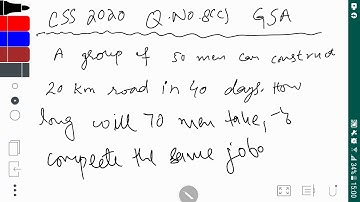 CSS 2020 Q.No.8(c) GSA
A group of 50 men can construct
20 km road in 40 days. How
long will 70 men take, to
complete the same job.
34% 15:00